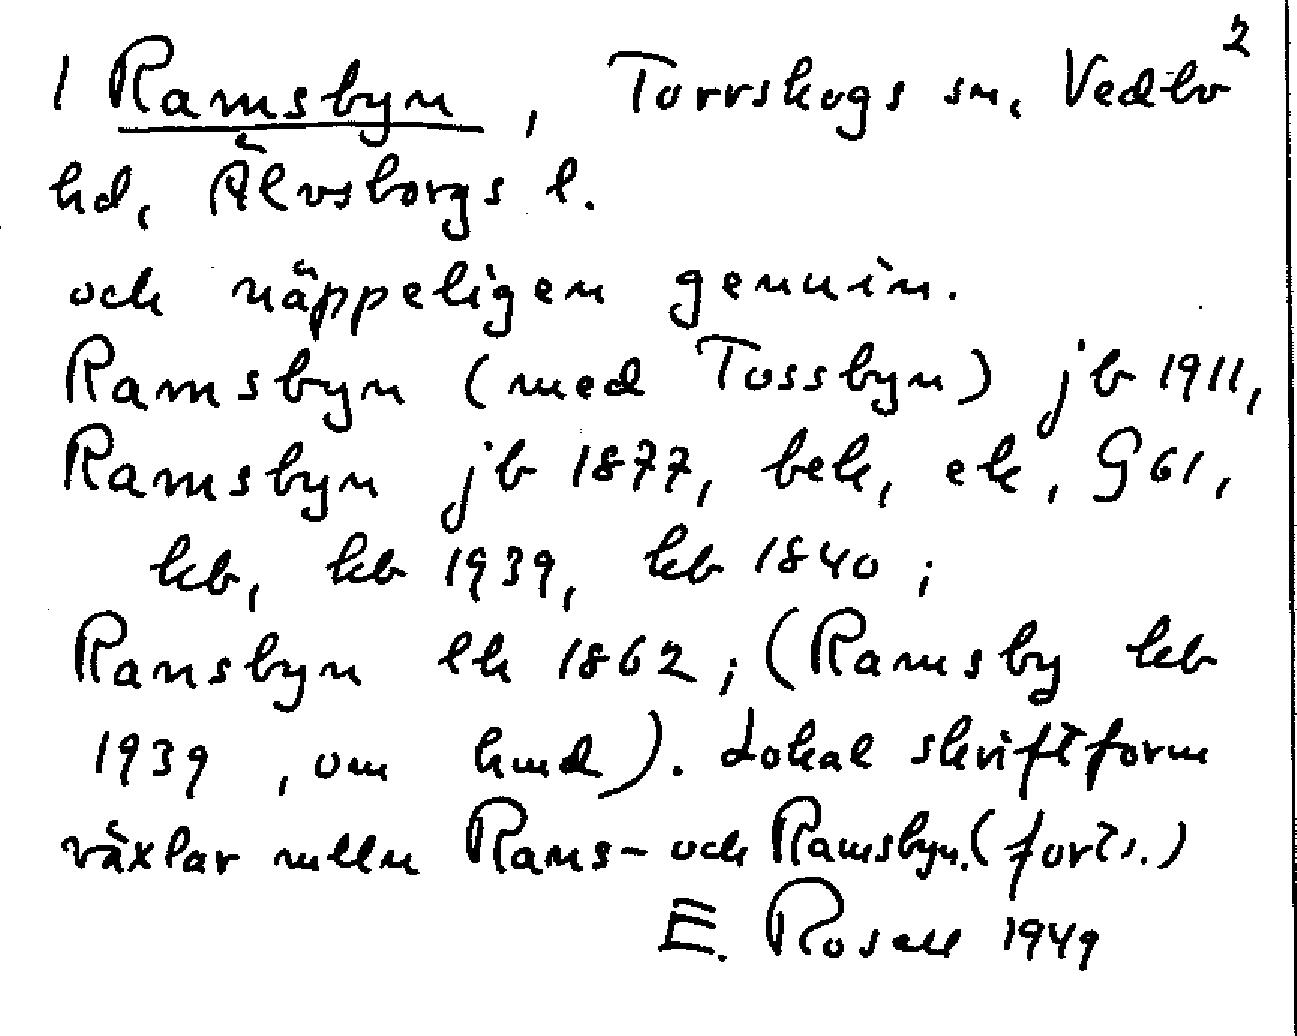 1 Ramsbyn, Torrskogs sn, Vedbo 2
hd, Älvsborgs l.
och näppeligen genuin.
Ramsbyn (med Tossbyn) jb 1911,
Ramsbyn jb 1877, bek, ek, G61,
kb, kb 1939, kb 1840;
Ransbyn lk 1862; (Ramsby kb
1939, om hmd). Lokal skriftform
växlar mlln Rans- och Ramsbyn. (forts.)
E. Rosell 1949